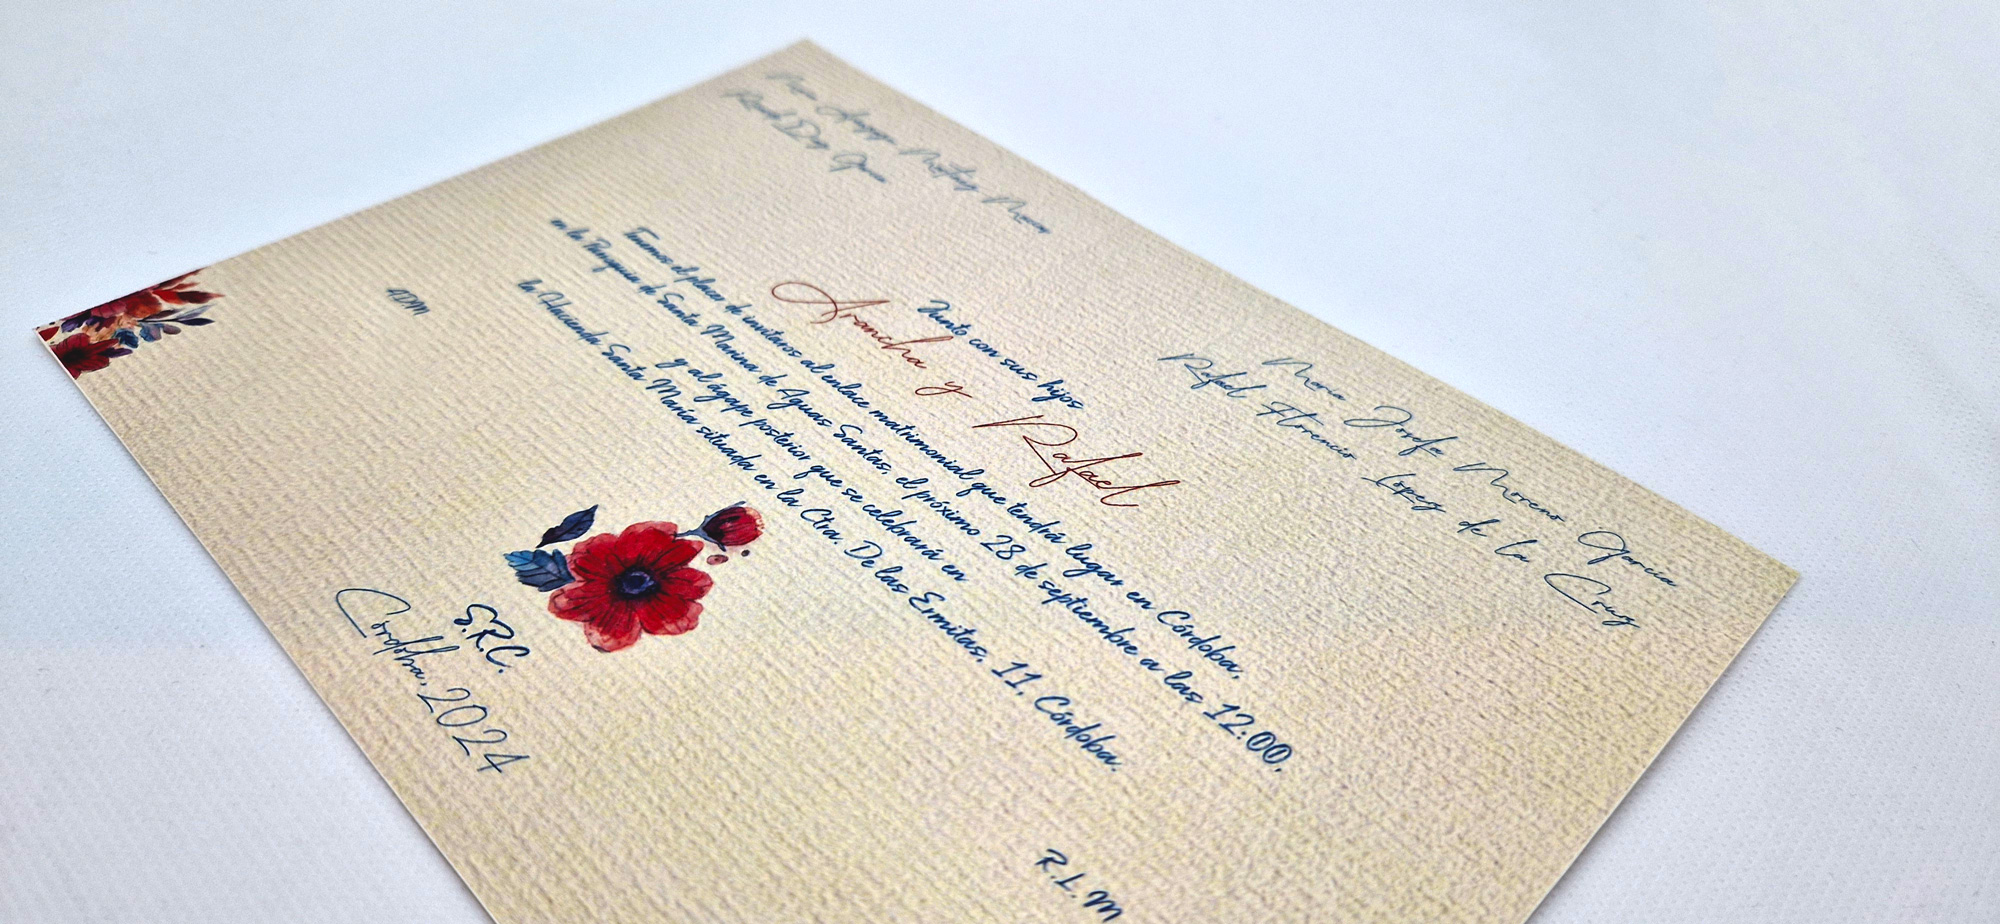 María Josefa Moreno García
Rafael Florencio López de la Cruz
Junto con sus hijos
Arancha y Rafael
Tenemos el placer de invitaros al enlace matrimonial que tendrá lugar en Córdoba,
en la Parroquia de Santa Marina de Aguas Santas, el próximo 28 de septiembre a las 12:00,
y al ágape posterior que se celebrará en
la Hacienda Santa María situada en la Ctra. De las Ermitas, 11, Córdoba.
S.R.C.
Córdoba, 2024
R.L.M